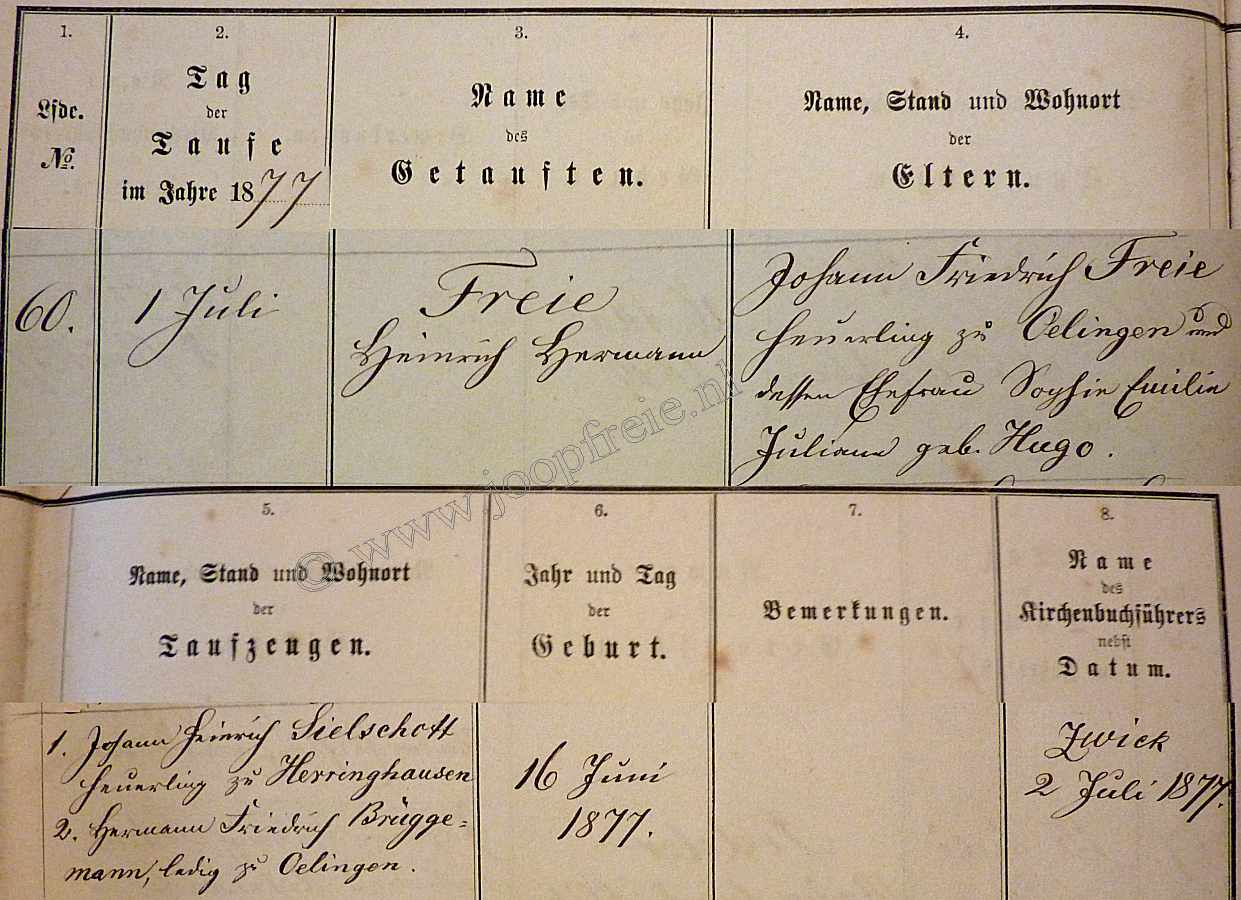 1.
Lfde.
No.
2.
Tag
der
Taufe
im Jahre 1877
3.
Name
des
Getauften.
4.
Name, Stand und Wohnort
der
Eltern.
60.
1 Juli
Freie
Heinrich Hermann
Johann Friedrich Freie
Heuerling zu Oelingen und
dessen Ehefrau Sophie Emilie
Juliane geb. Hugo.
© www.joopfreie.nl
5.
Name, Stand und Wohnort
der
Taufzeugen.
6.
Jahr und Tag
der
Geburt.
7.
Bemerkungen.
8.
Name
des
Kirchenbuchführers
nebst
Datum.
1. Johann Heinrich Sielschott
Heuerling zu Herringhausen
2. Hermann Friedrich Brügge=
mann, ledig zu Oelingen.
16 Juni
1877.
Zwick
2 Juli 1877.